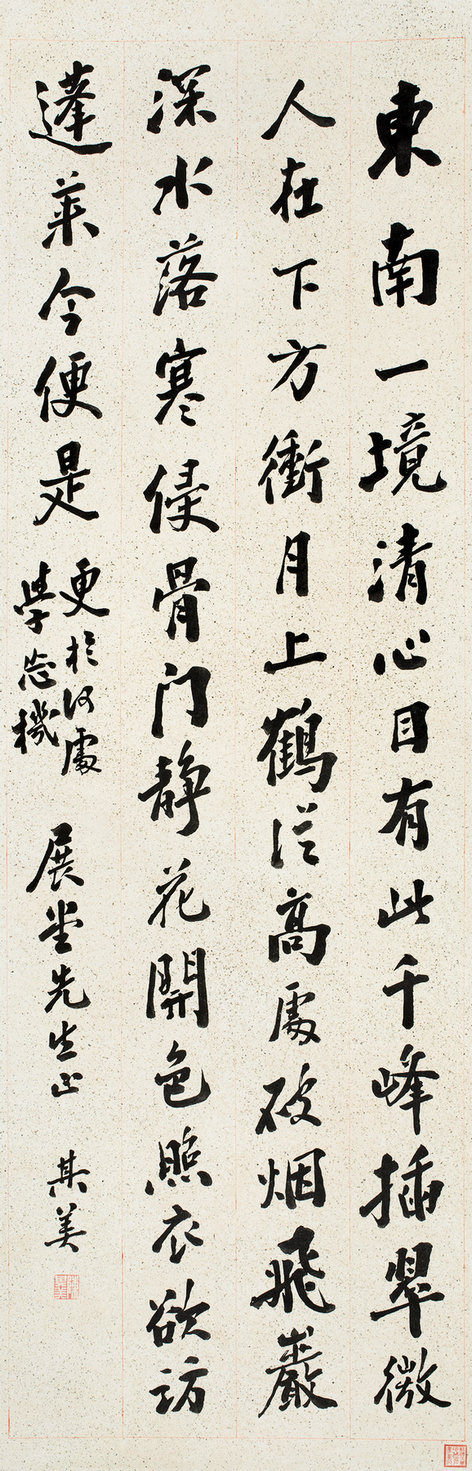 東南一境清心目有此千峰插翠微
人在下方衝月上鶴從高處破烟飛巖
深水落寒侵骨门靜花開色照衣欲訪
蓬萊今便是
更於何處
學忘機
展堂先生正
其美